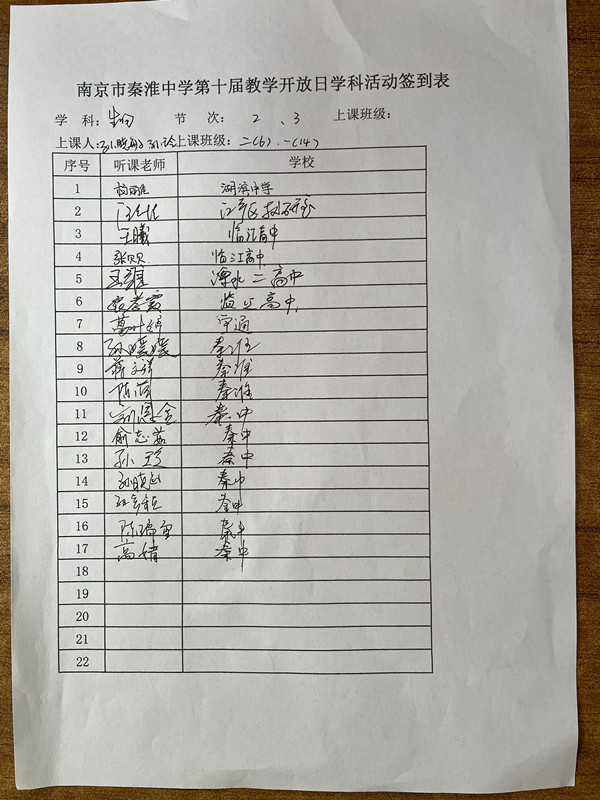 南京市秦淮中学第十届教学开放日学科活动签到表
学 科: 生物 节 次: 2、3 上课班级:
上课人: 上课班级: 二(6)、一(14)
序号 听课老师 学校
1 湖滨中学
2 江宁区教研室
3 王曦 临江高中
4 张贝贝 临江高中
5 溧水二高中
6 临江高中
7 葛叶婷 宁通
8 孙媛媛 秦淮
9 蒋文祥 秦淮
10 陈茵 秦淮
11 秦中
12 俞志茹 秦中
13 孙玲 秦中
14 孙晓 秦中
15 秦中
16 陈瑞雪 秦中
17 高婧 秦中
18
19
20
21
22